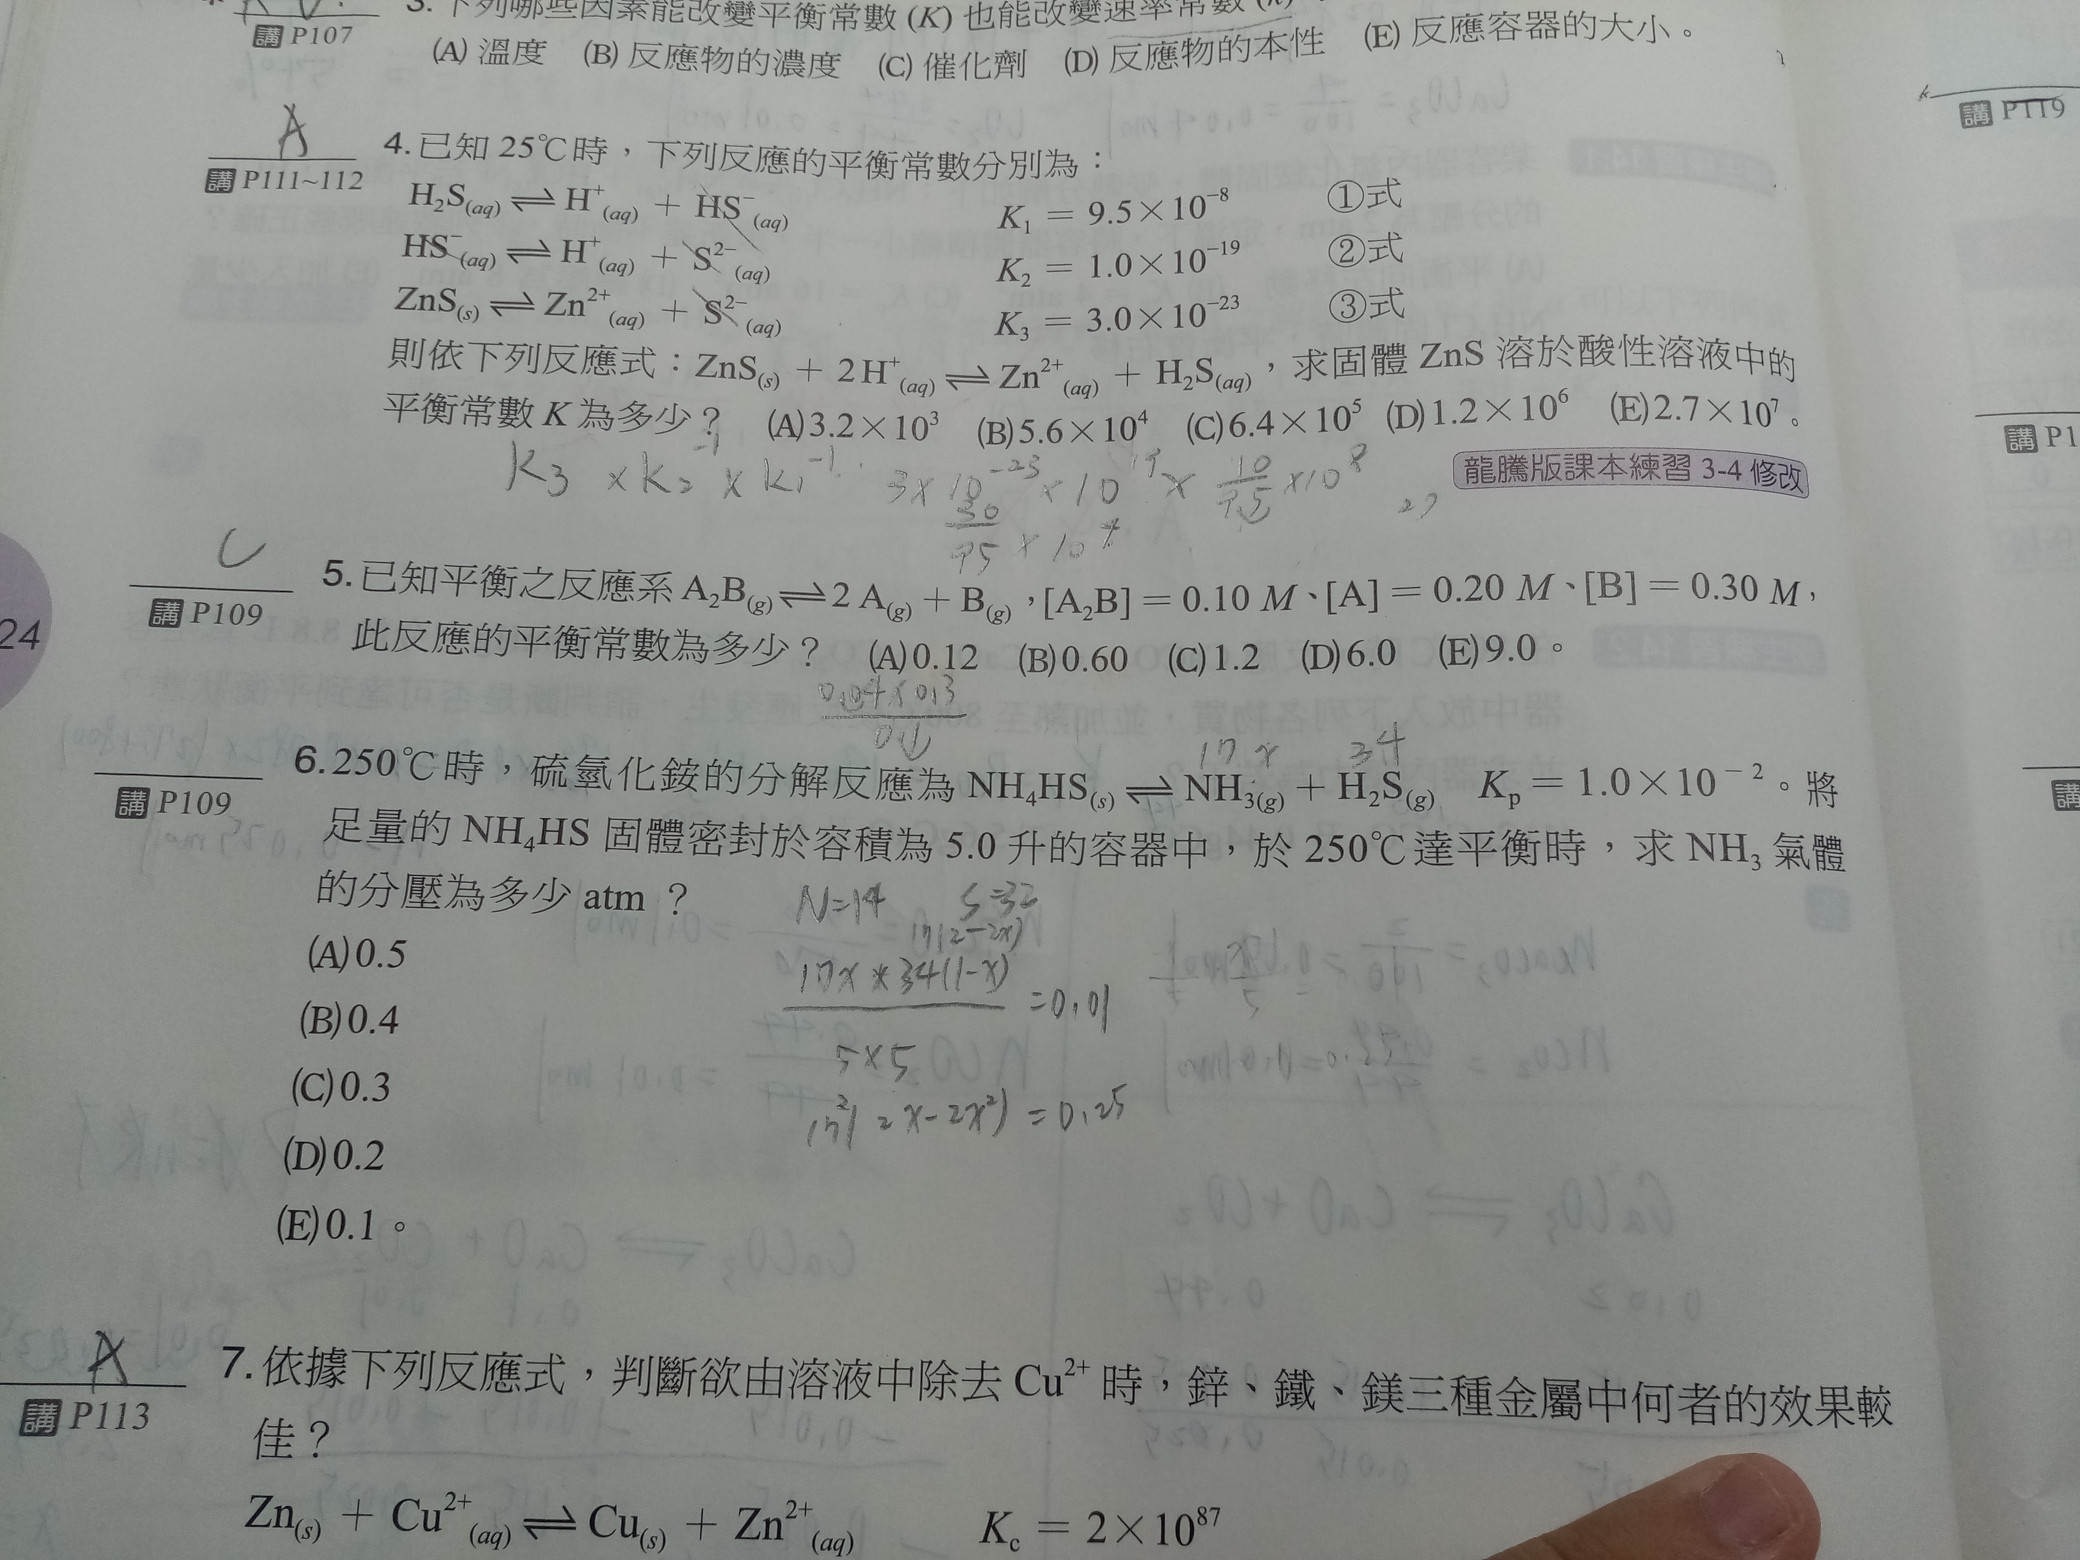 3. 下列哪些因素能改變平衡常數 (K) 也能改變速率常數 (k)
講 P107
(A) 溫度 (B) 反應物的濃度 (C) 催化劑 (D) 反應物的本性 (E) 反應容器的大小。
講 P119
A
講 P111~112
4. 已知 25℃時，下列反應的平衡常數分別為：
H₂S(aq) ⇌ H⁺(aq) + HS⁻(aq) K₁ = 9.5×10⁻⁸ ①式
HS⁻(aq) ⇌ H⁺(aq) + S²⁻(aq) K₂ = 1.0×10⁻¹⁹ ②式
ZnS(s) ⇌ Zn²⁺(aq) + S²⁻(aq) K₃ = 3.0×10⁻²³ ③式
則依下列反應式：ZnS(s) + 2H⁺(aq) ⇌ Zn²⁺(aq) + H₂S(aq)，求固體 ZnS 溶於酸性溶液中的
平衡常數 K 為多少？ (A)3.2×10³ (B)5.6×10⁴ (C)6.4×10⁵ (D)1.2×10⁶ (E)2.7×10⁷。
講 P1
K₃ × K₂⁻¹ × K₁⁻¹ 3×10⁻²³×10¹⁹× 10/9.5 ×10⁸ 27
龍騰版課本練習 3-4 修改
30/95 × 10⁴
C
講 P109
24
5. 已知平衡之反應系 A₂B(g) ⇌ 2 A(g) + B(g)，[A₂B] = 0.10 M、[A] = 0.20 M、[B] = 0.30 M，
此反應的平衡常數為多少？ (A)0.12 (B)0.60 (C)1.2 (D)6.0 (E)9.0。
0.04×0.3
0.1
17 x 34
講 P109
6. 250℃時，硫氫化銨的分解反應為 NH₄HS(s) ⇌ NH₃(g) + H₂S(g) Kp = 1.0×10⁻²。將
足量的 NH₄HS 固體密封於容積為 5.0 升的容器中，於 250℃達平衡時，求 NH₃ 氣體
的分壓為多少 atm？
N=14 S=32
17(2-2x)
(A)0.5
17x * 34(1-x)
(B)0.4
=0.01
5×5
(C)0.3
17²(2x-2x²) = 0.25
(D)0.2
(E)0.1。
A
講 P113
7. 依據下列反應式，判斷欲由溶液中除去 Cu²⁺ 時，鋅、鐵、鎂三種金屬中何者的效果較
佳？
Zn(s) + Cu²⁺(aq) ⇌ Cu(s) + Zn²⁺(aq) Kc = 2×10⁸⁷